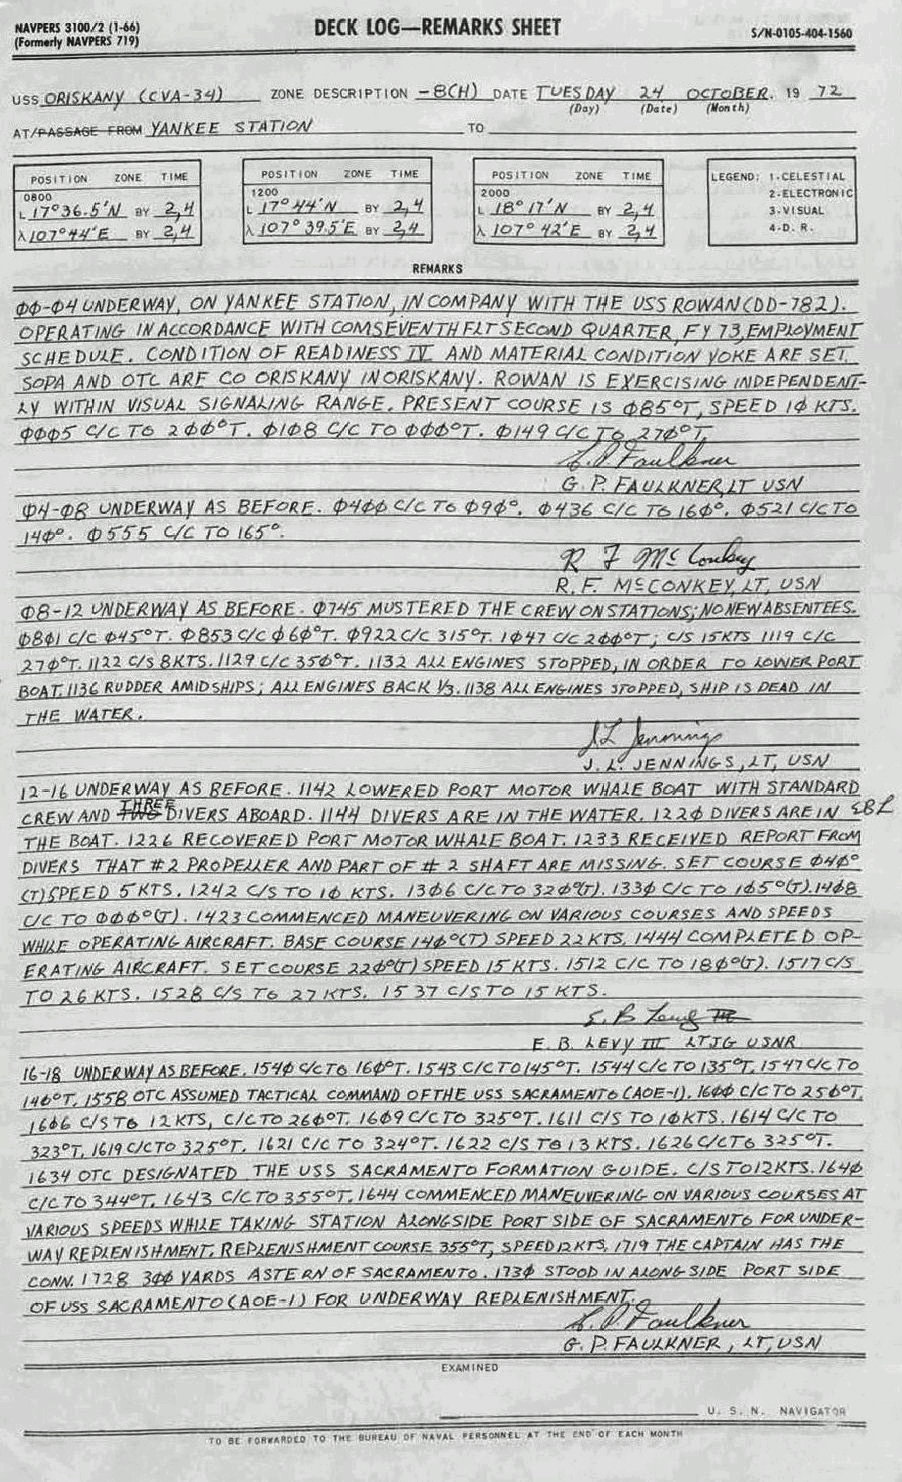 NAVPERS 3100/2 (1-66)
(Formerly NAVPERS 719)
DECK LOG—REMARKS SHEET
S/N-0105-404-1560
USS ORISKANY (CVA-34) ZONE DESCRIPTION -8(H) DATE TUESDAY 24 OCTOBER. 19 72
(Day) (Date) (Month)
AT/PASSAGE FROM YANKEE STATION TO
POSITION ZONE TIME
0800
L 17°36.5'N BY 2,4
λ 107°44'E BY 2,4
POSITION ZONE TIME
1200
L 17°44'N BY 2,4
λ 107°39.5'E BY 2,4
POSITION ZONE TIME
2000
L 18°17'N BY 2,4
λ 107°42'E BY 2,4
LEGEND: 1-CELESTIAL
2-ELECTRONIC
3-VISUAL
4-D. R.
REMARKS
ØØ-Ø4 UNDERWAY, ON YANKEE STATION, IN COMPANY WITH THE USS ROWAN (DD-782).
OPERATING IN ACCORDANCE WITH COMSEVENTHFLT SECOND QUARTER, FY 73, EMPLOYMENT
SCHEDULE. CONDITION OF READINESS IV AND MATERIAL CONDITION YOKE ARE SET.
SOPA AND OTC ARE CO ORISKANY IN ORISKANY. ROWAN IS EXERCISING INDEPENDENT-
LY WITHIN VISUAL SIGNALING RANGE. PRESENT COURSE IS Ø85°T, SPEED 1Ø KTS.
ØØØ5 C/C TO 2ØØ°T. Ø1Ø8 C/C TO ØØØ°T. Ø149 C/C TO 27Ø°T.
G. P. Faulkner
G. P. FAULKNER, LT USN
Ø4-Ø8 UNDERWAY AS BEFORE. Ø4ØØ C/C TO Ø9Ø°. Ø436 C/C TO 16Ø°. Ø521 C/C TO
14Ø°. Ø555 C/C TO 165°.
R F McConkey
R. F. McCONKEY, LT, USN
Ø8-12 UNDERWAY AS BEFORE. Ø745 MUSTERED THE CREW ON STATIONS; NO NEW ABSENTEES.
Ø8Ø1 C/C Ø45°T. Ø853 C/C Ø6Ø°T. Ø922 C/C 315°T. 1Ø47 C/C 2ØØ°T; C/S 15KTS 1119 C/C
27Ø°T. 1122 C/S 8KTS. 1129 C/C 35Ø°T. 1132 ALL ENGINES STOPPED, IN ORDER TO LOWER PORT
BOAT. 1136 RUDDER AMIDSHIPS; ALL ENGINES BACK 1/3. 1138 ALL ENGINES STOPPED, SHIP IS DEAD IN
THE WATER.
J L Jennings
J. L. JENNINGS, LT, USN
12-16 UNDERWAY AS BEFORE. 1142 LOWERED PORT MOTOR WHALE BOAT WITH STANDARD
CREW AND TWO THREE DIVERS ABOARD. 1144 DIVERS ARE IN THE WATER. 122Ø DIVERS ARE IN EBL
THE BOAT. 1226 RECOVERED PORT MOTOR WHALE BOAT. 1233 RECEIVED REPORT FROM
DIVERS THAT #2 PROPELLER AND PART OF #2 SHAFT ARE MISSING. SET COURSE Ø4Ø°
(T) SPEED 5 KTS. 1242 C/S TO 1Ø KTS. 13Ø6 C/C TO 32Ø°(T). 133Ø C/C TO 1Ø5°(T). 14Ø8
C/C TO ØØØ°(T). 1423 COMMENCED MANEUVERING ON VARIOUS COURSES AND SPEEDS
WHILE OPERATING AIRCRAFT. BASE COURSE 14Ø°(T) SPEED 22 KTS. 1444 COMPLETED OP-
ERATING AIRCRAFT. SET COURSE 22Ø°(T) SPEED 15 KTS. 1512 C/C TO 18Ø°(T). 1517 C/S
TO 26 KTS. 1528 C/S TO 27 KTS. 1537 C/S TO 15 KTS.
E. B Levy III
E. B. LEVY III LTJG USNR
16-18 UNDERWAY AS BEFORE. 154Ø C/C TO 16Ø°T. 1543 C/C TO 145°T. 1544 C/C TO 135°T. 1547 C/C TO
14Ø°T. 1558 OTC ASSUMED TACTICAL COMMAND OF THE USS SACRAMENTO (AOE-1). 16ØØ C/C TO 25Ø°T.
16Ø6 C/S TO 12 KTS, C/C TO 26Ø°T. 16Ø9 C/C TO 325°T. 1611 C/S TO 1ØKTS. 1614 C/C TO
323°T. 1619 C/C TO 325°T. 1621 C/C TO 324°T. 1622 C/S TO 13 KTS. 1626 C/C TO 325°T.
1634 OTC DESIGNATED THE USS SACRAMENTO FORMATION GUIDE. C/S TO 12KTS. 164Ø
C/C TO 344°T. 1643 C/C TO 355°T. 1644 COMMENCED MANEUVERING ON VARIOUS COURSES AT
VARIOUS SPEEDS WHILE TAKING STATION ALONGSIDE PORT SIDE OF SACRAMENTO FOR UNDER-
WAY REPLENISHMENT. REPLENISHMENT COURSE 355°T, SPEED 12 KTS. 1719 THE CAPTAIN HAS THE
CONN. 1728 3ØØ YARDS ASTERN OF SACRAMENTO. 173Ø STOOD IN ALONGSIDE PORT SIDE
OF USS SACRAMENTO (AOE-1) FOR UNDERWAY REPLENISHMENT.
G. P. Faulkner
G. P. FAULKNER, LT, USN
EXAMINED
U. S. N. NAVIGATOR
TO BE FORWARDED TO THE BUREAU OF NAVAL PERSONNEL AT THE END OF EACH MONTH